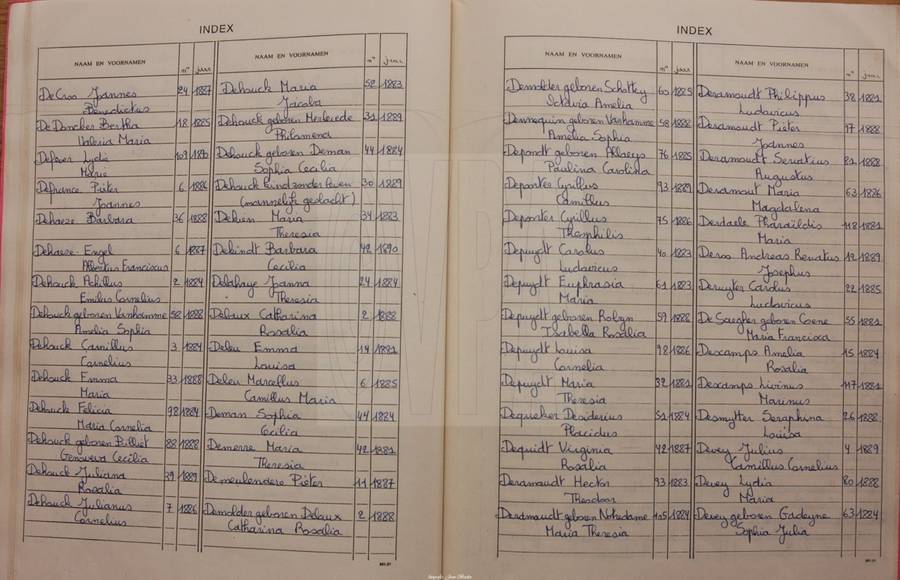 INDEX
NAAM EN VOORNAMEN nr jaar
De Croo Joannes 24 1887
Benedictus
De Doncker Bertha 18 1885
Valeria Maria
Defever Lydie
Marie
Defrance Pieter 6 1886
Joannes
Dehaeze Barbara 36 1888
Dehaese Engel 6 1887
Albertus Franciscus
Dehouck Achillus 2 1884
Emilius Cornelius
Dehouck geboren Vanhamme 58 1888
Amelia Sophia
Dehouck Camillus 3 1884
Cornelius
Dehouck Emma 33 1888
Maria
Dehouck Felicia 98 1884
Maria Cornelia
Dehouck geboren Billiet 88 1888
Genoveva Cecilia
Dehouck Juliana 39 1889
Rosalia
Dehouck Julianus 7 1886
Cornelius
NAAM EN VOORNAMEN nr jaar
Dehouck Maria 52 1883
Jacoba
Dehouck geboren 31 1889
Philomena
Dehouck geboren Deman 44 1884
Sophia Cecilia
Dehouck kind zonder leven 30 1889
(mannelijk geslacht)
Dekien Maria 34 1883
Theresia
Dekindt Barbara 42 1890
Cecilia
Delahaye Joanna 24 1884
Theresia
Delaux Catharina 2 1888
Rosalia
Deleu Emma 14 1881
Louisa
Deleu Marcellus 6 1885
Camillus Maria
Deman Sophia 44 1884
Cecilia
Demerre Maria 42 1881
Theresia
Demeulendere Pieter 11 1887
Demolder geboren Delaux 2 1888
Catharina Rosalia
INDEX
NAAM EN VOORNAMEN nr jaar
Demolder geboren Schottey 60 1885
Silvia Amelia
Dennequin geboren Vanhamme 58 1888
Amelia Sophia
Depondt geboren Allaeys 76 1885
Paulina Carolina
Deporter Cyrillus 93 1889
Camillus
Deporter Cyrillus 75 1886
Theophilis
Depuydt Carolus 40 1883
Ludovicus
Depuydt Euphrasia 61 1883
Maria
Depuydt geboren Robyn 59 1888
Isabella Rosalia
Depuydt Louisa 98 1886
Cornelia
Depuydt Maria 32 1881
Theresia
Dequeker Desiderius 51 1884
Placidus
Dequidt Virginia 42 1887
Rosalia
Deramoudt Hector 93 1883
Theodoor
Deramoudt geboren Notredame 105 1884
Maria Theresia
NAAM EN VOORNAMEN nr jaar
Deramoudt Philippus 38 1881
Ludovicus
Deramoudt Pieter 17 1888
Joannes
Deramoudt Seratius 81 1888
Augustus
Deramout Maria 63 1886
Magdalena
Derdaele Pharaildis 118 1881
Maria
Deroo Andreas Renatus 12 1889
Josephus
Deruyter Carolus 22 1885
Ludovicus
De Saegher geboren Coene 55 1881
Maria Francisca
Descamps Amelia 15 1884
Rosalia
Descamps Livinus 117 1881
Marinus
Desmytter Seraphina 26 1888
Louisa
Devey Julius 4 1889
Camillus Cornelius
Devey Lydia 80 1888
Maria
Devey geboren Gadeyne 63 1884
Sophia Julia